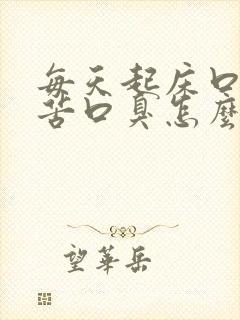 每天起床口
苦口臭怎麼
望華岳